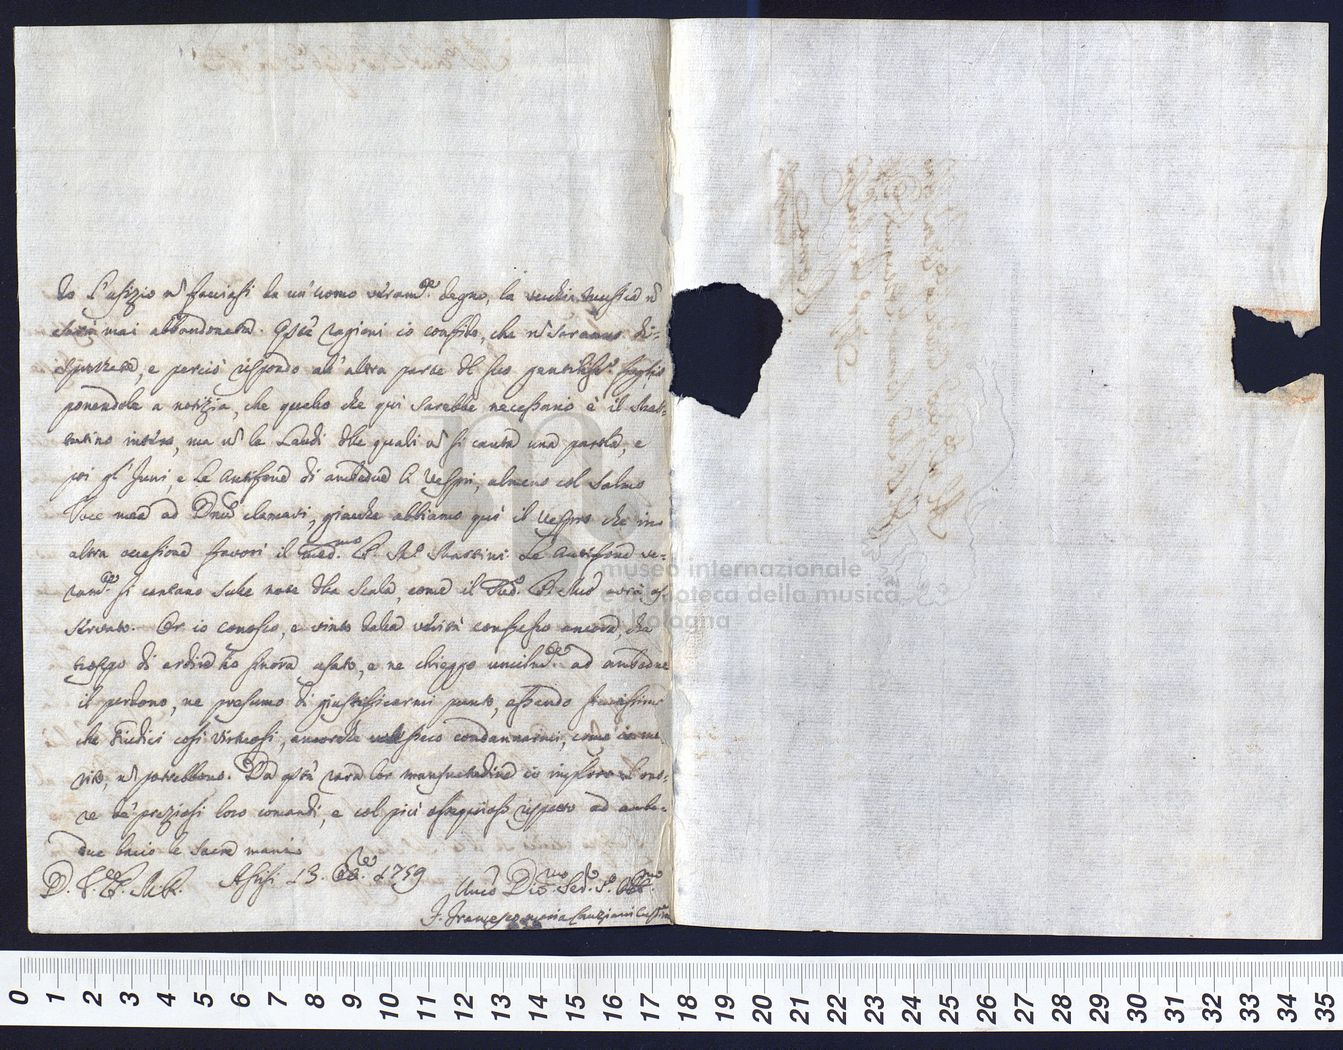 do l'ufizio n facciasi da un'uomo veram.te degno, la vecchia musica n
mai abbandonata. Qste ragioni io confido, che n saranno di=
sprezzate, e perciò rispondo all'altra parte del suo gentiliss.o foglio
ponendole a notizia, che quello che qui sarebbe necessario è il Mat-
tutino intero, ma n le Laudi dlle quali n si canta una parola, e
poi gl'Inni e le Antifone di ambidue i Vespri, almeno col Salmo
Voce mea ad Dnum clamavi, giacche abbiamo qui il Vespro che in
altra occasione favorì il med.mo P. M.ro Martini. Le Antifone ve-
ram.te si cantano sulle note dlla Scala, come il Red.o P. M.ro avrà os
servato. Or io conosco, e vinto dalla verità confesso ancora, che
troppo di ardire ho finora usato, e ne chieggo umilm.te ad ambedue
il perdono, ne presumo di giustificarmi punto, essendo
che Giudici così virtuosi, ancorche condannarmi, come io me
rito, n potrebbono. Da qsta rara lor mansuetudine io imploro l'ono-
re de' preziosi loro comandi, e col più ossequioso rispetto ad ambe-
due bacio le sacre mani
D. V. P. M. R. Assisi 13. 1759
Umo Dmo Sed. S.
F. Francesco Maria
museo internazionale
e biblioteca della musica
di bologna
0 1 2 3 4 5 6 7 8 9 10 11 12 13 14 15 16 17 18 19 20 21 22 23 24 25 26 27 28 29 30 31 32 33 34 35